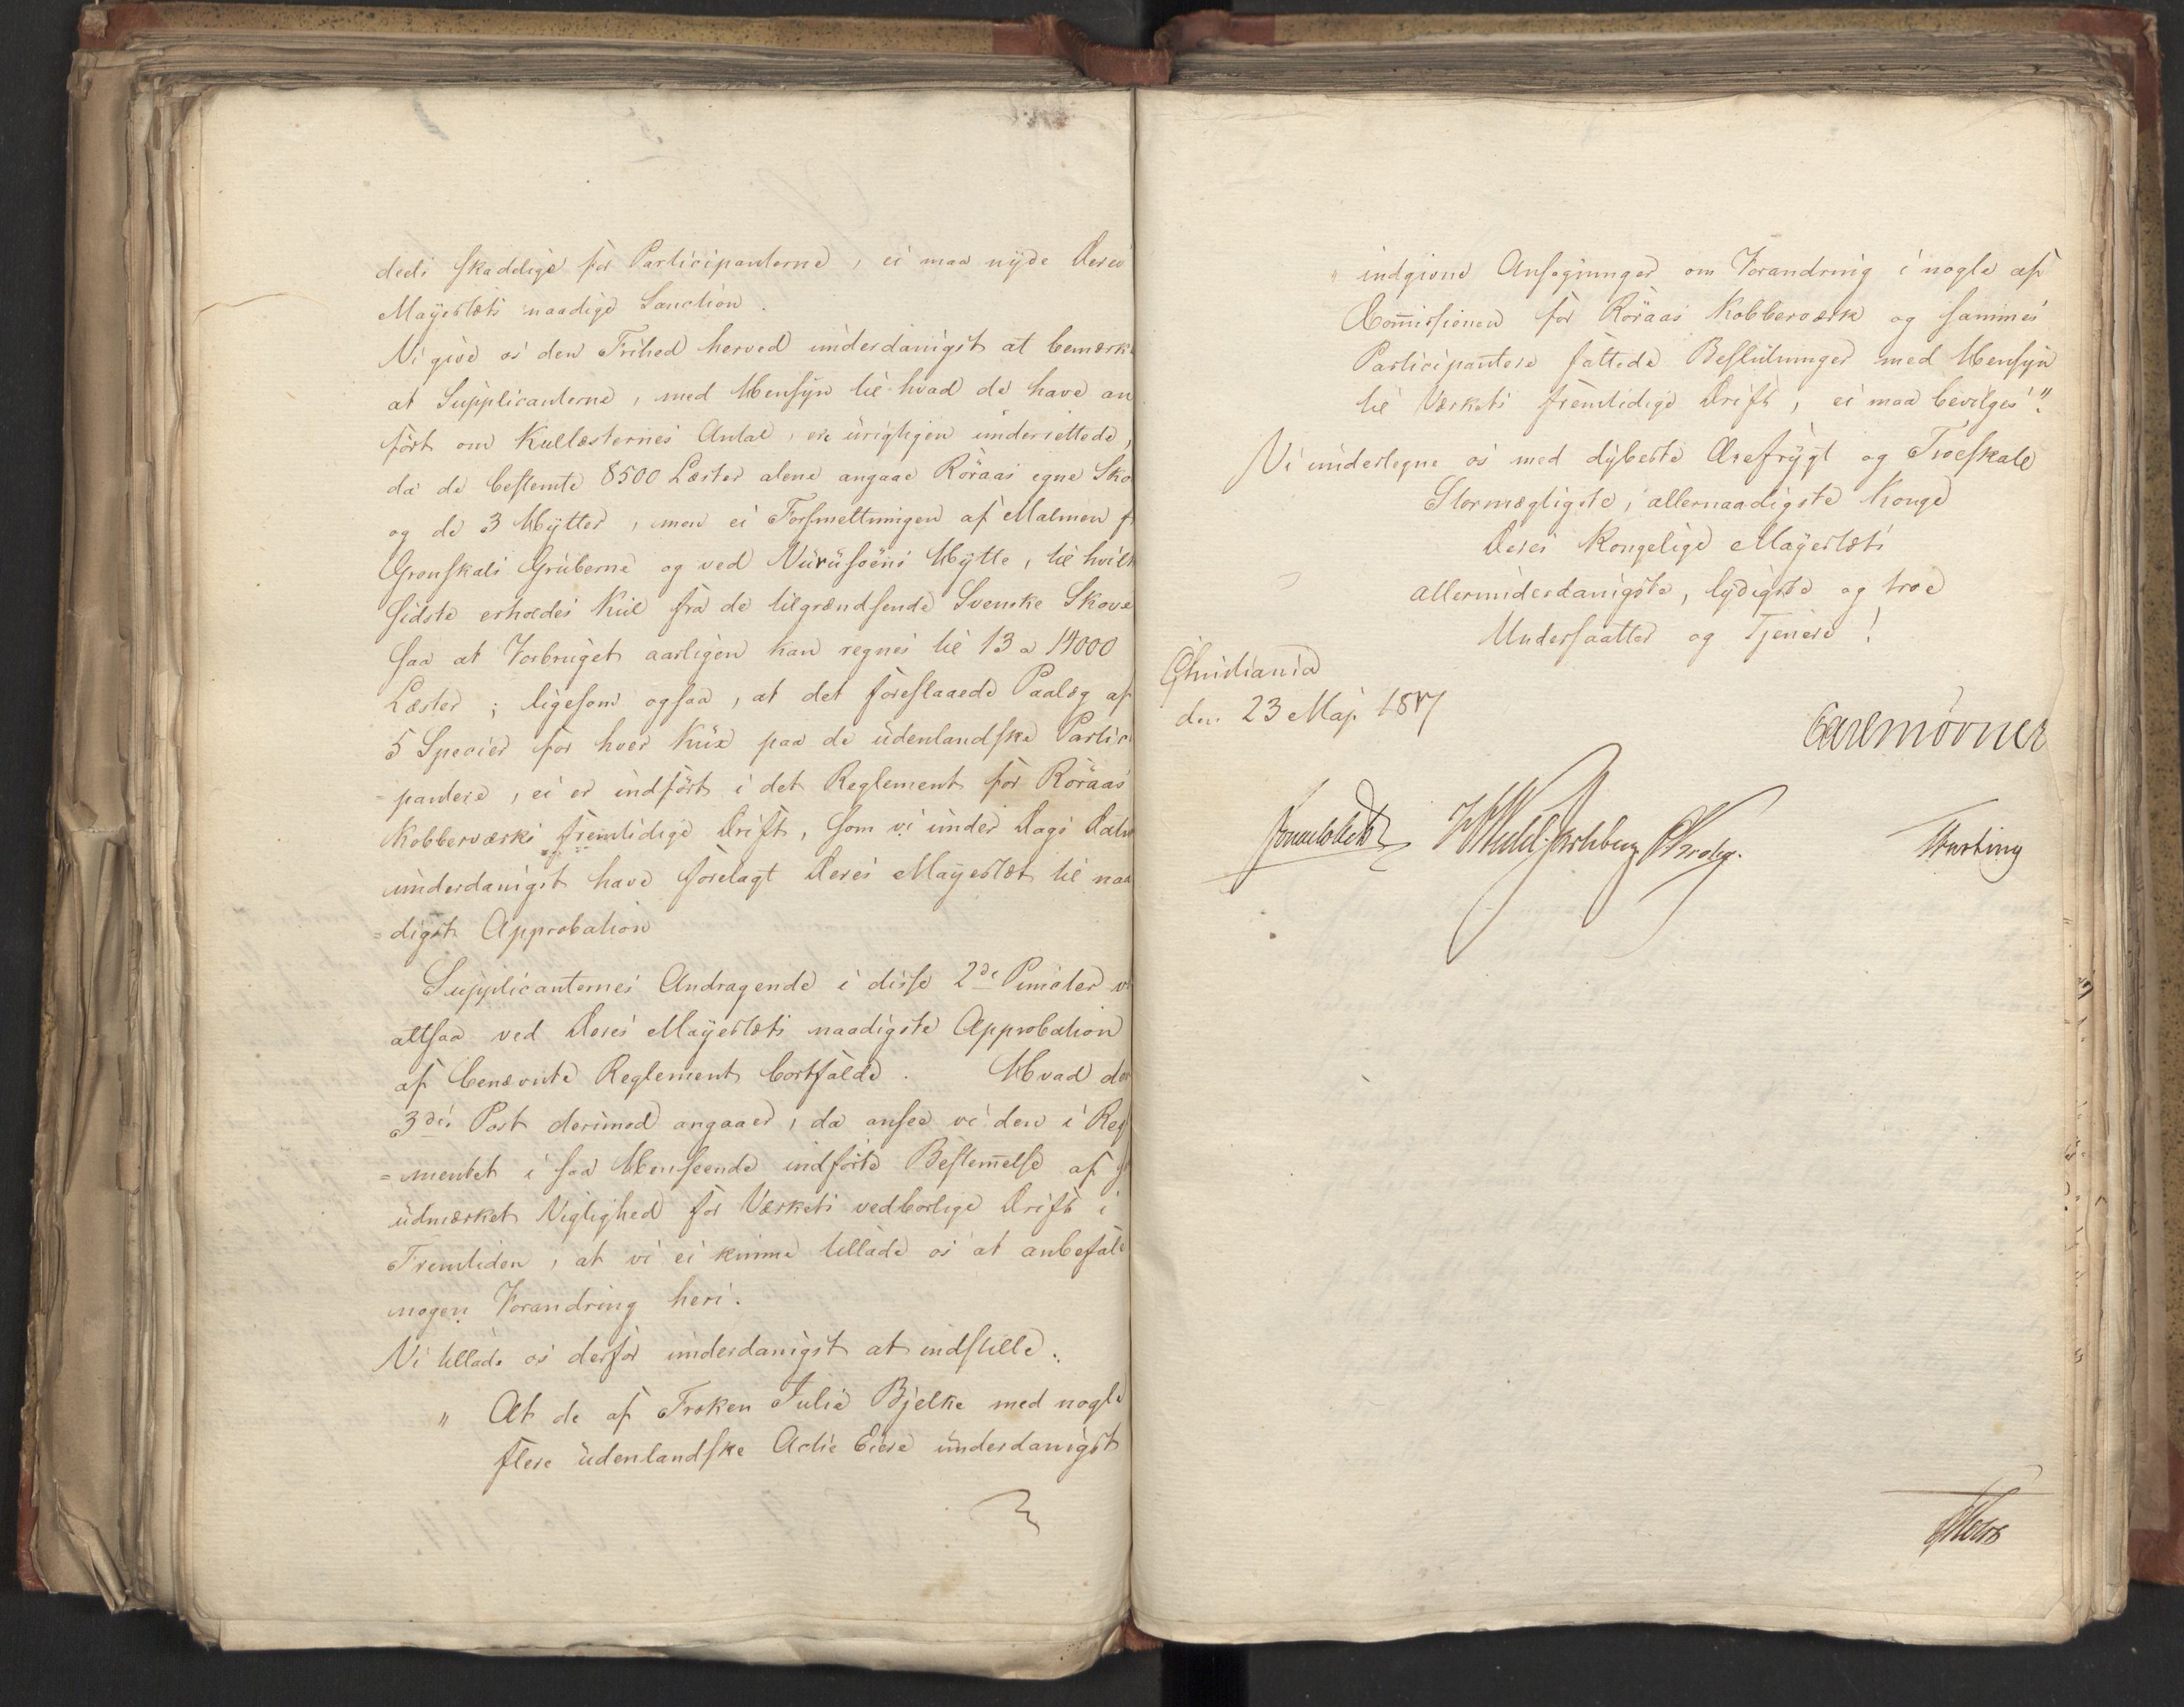 deels skadelige for Participanterne, ei maa nyde Deres
Majestæts naadige Sanction.
Vi give os den Frihed herved underdanigst at bemærke
at Supplicanterne, med Hensyn til hvad de have an
ført om Kullæsternes Antal, ere urigtigen underrettede,
da de bestemte 8500 Læster alene angaae Röraas egne Sko
og de 3 Hytter, men ei Forsmeltningen af Malmen f
Gronskals Gruberne og ved Hytte, til hvilk
sidste erholdes Kul fra de tilgrændsende Svenske Skove
saa at Forbruget aarligen kan regnes til 13 a 14000
Læster; ligesom ogsaa, at det foreslaaede Paalæg af
5 Species for hver Kux paa de udenlandske Partici
=pantere, ei er indført i det Reglement for Röraas
Kobberværks fremtidige Drift, som vi under Dags Dato
underdanigst have forelagt Deres Majestæt til naa
=digst Approbation
Supplicanternes Andragende i disse 2de Puncter v
altsaa ved Deres Majestæts naadigste Approbation
af benævnte Reglement bortfalde. Hvad den
3die Post derimod angaaer, da ansee vi den i Reg
=mentet i saa Henseende indførte Bestem̅else af
udmærket Vigtighed for Værkets vedborlige Drift i
Fremtiden, at vi ei kunne tillade os at anbefale
nogen Forandring heri.
Vi tillade os derfor underdanigst at indstille:
" At de af Frøken Julie Bjelke med nogle
flere udenlandske Actie Eiere underdanigst
" indgivne Ansøgninger om Forandring i nogle af
Com̅issionen for Röraas Kobberværk og sammes
Participantere fattede Beslutninger med Hensyn
til Værkets fremtidige Drift, ei maa bevilges".
Vi undertegne os med dybeste Ærefrygt og Troeskab
Stormægtigste, allernaadigste Konge
Deres Kongelige Majestæts
allerunderdanigste, lydigste og troe
Undersaatter og Tjenere!
Christiania
den 23 Maj 1817
Carl Mörner
Sommerhielm HWedel Jarlsberg CKrohg.